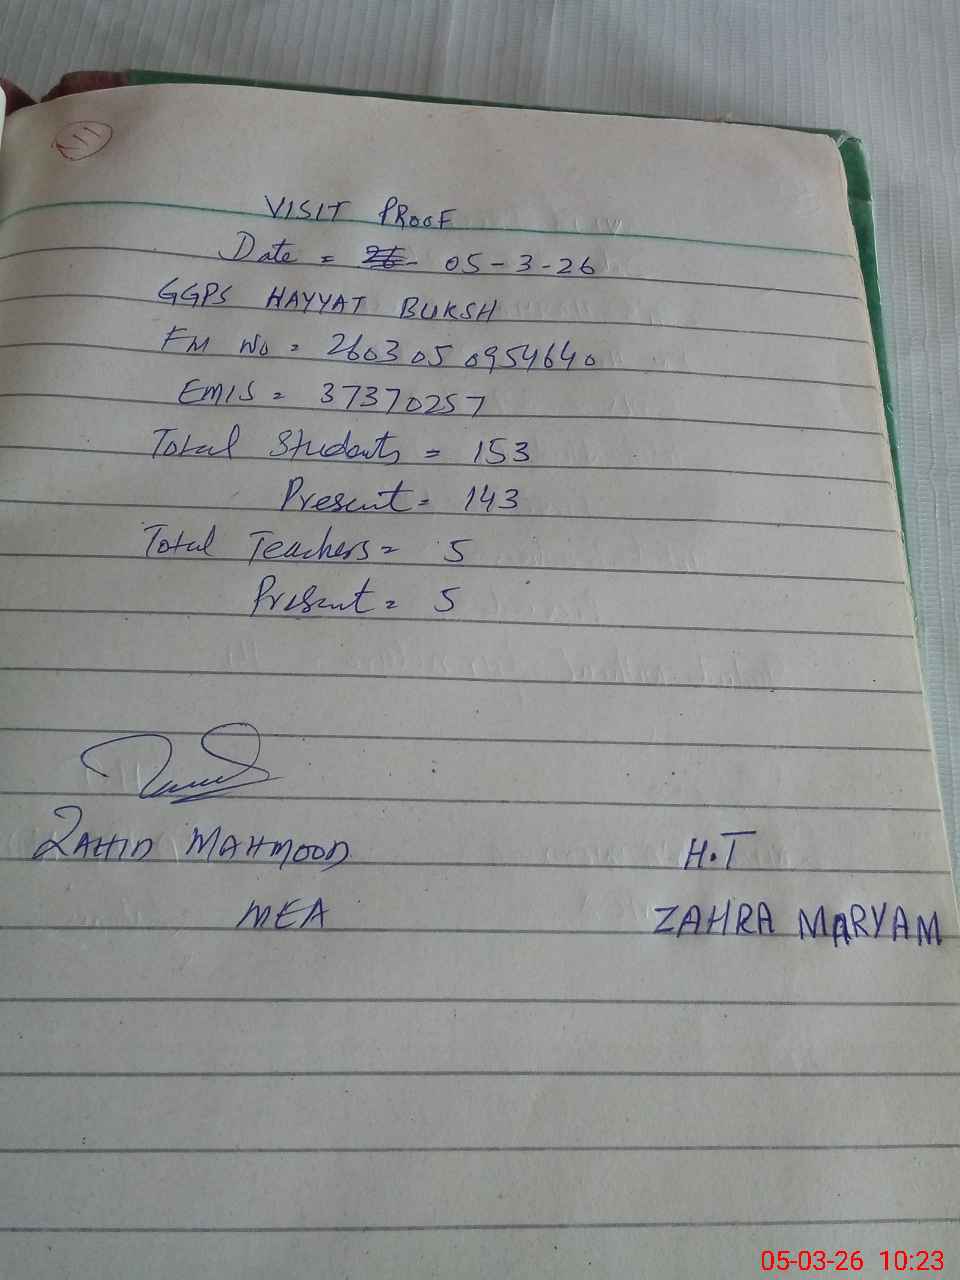 111
VISIT PROOF
Date = 05-3-26
GGPS HAYYAT BUKSH
FM No = 2603050954640
EMIS = 37370257
Total Students = 153
Present = 143
Total Teachers = 5
Present = 5
ZAHID MAHMOOD
MEA
H.T
ZAHRA MARYAM
05-03-26 10:23